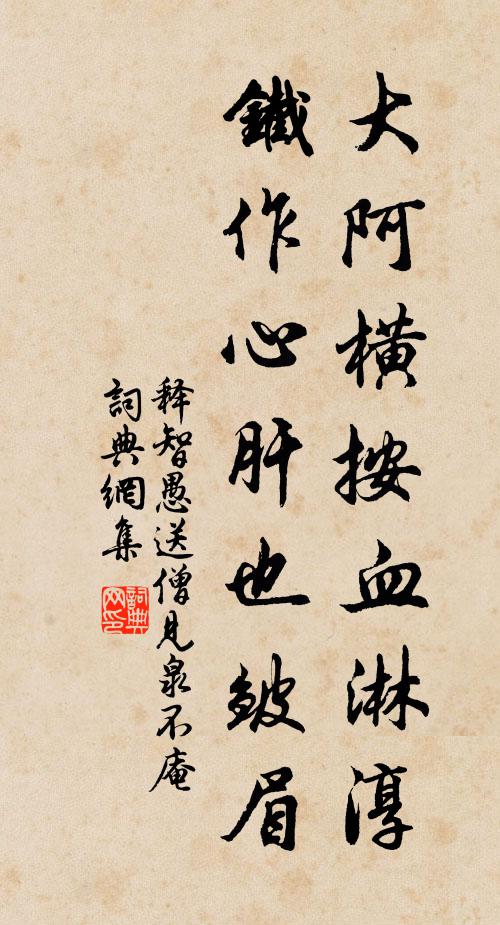 大阿橫按血淋淳
鐵作心肝也皺眉
释智愚送僧見泉不庵
詞典網集
詞典网印